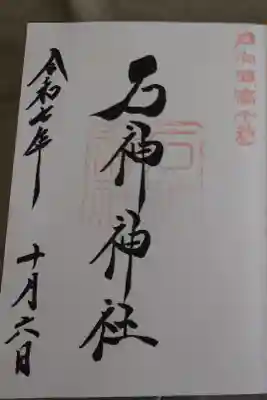 石神神社
令和七年
十月六日